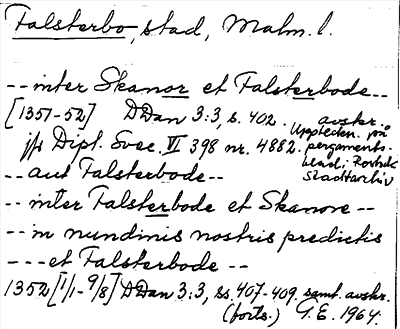 Falsterbo, stad, Malm. l.
-- inter Skanor et Falsterbode --
[1351-52] DDan 3:3, s. 402. avskr.
Uppteckn. på
jfr Dipl. Svec. VI 398 nr. 4882. pergaments-
blad i Rostock
stadtarchiv
-- aut Falsterbode --
-- inter Falsterbode et Skanore --
-- in nundinis nostris predictis
--- et Falsterbode --
1352 [1/1-9/8] DDan 3:3, ss. 407-409. samt. avskr.
(forts.) G.E. 1964.